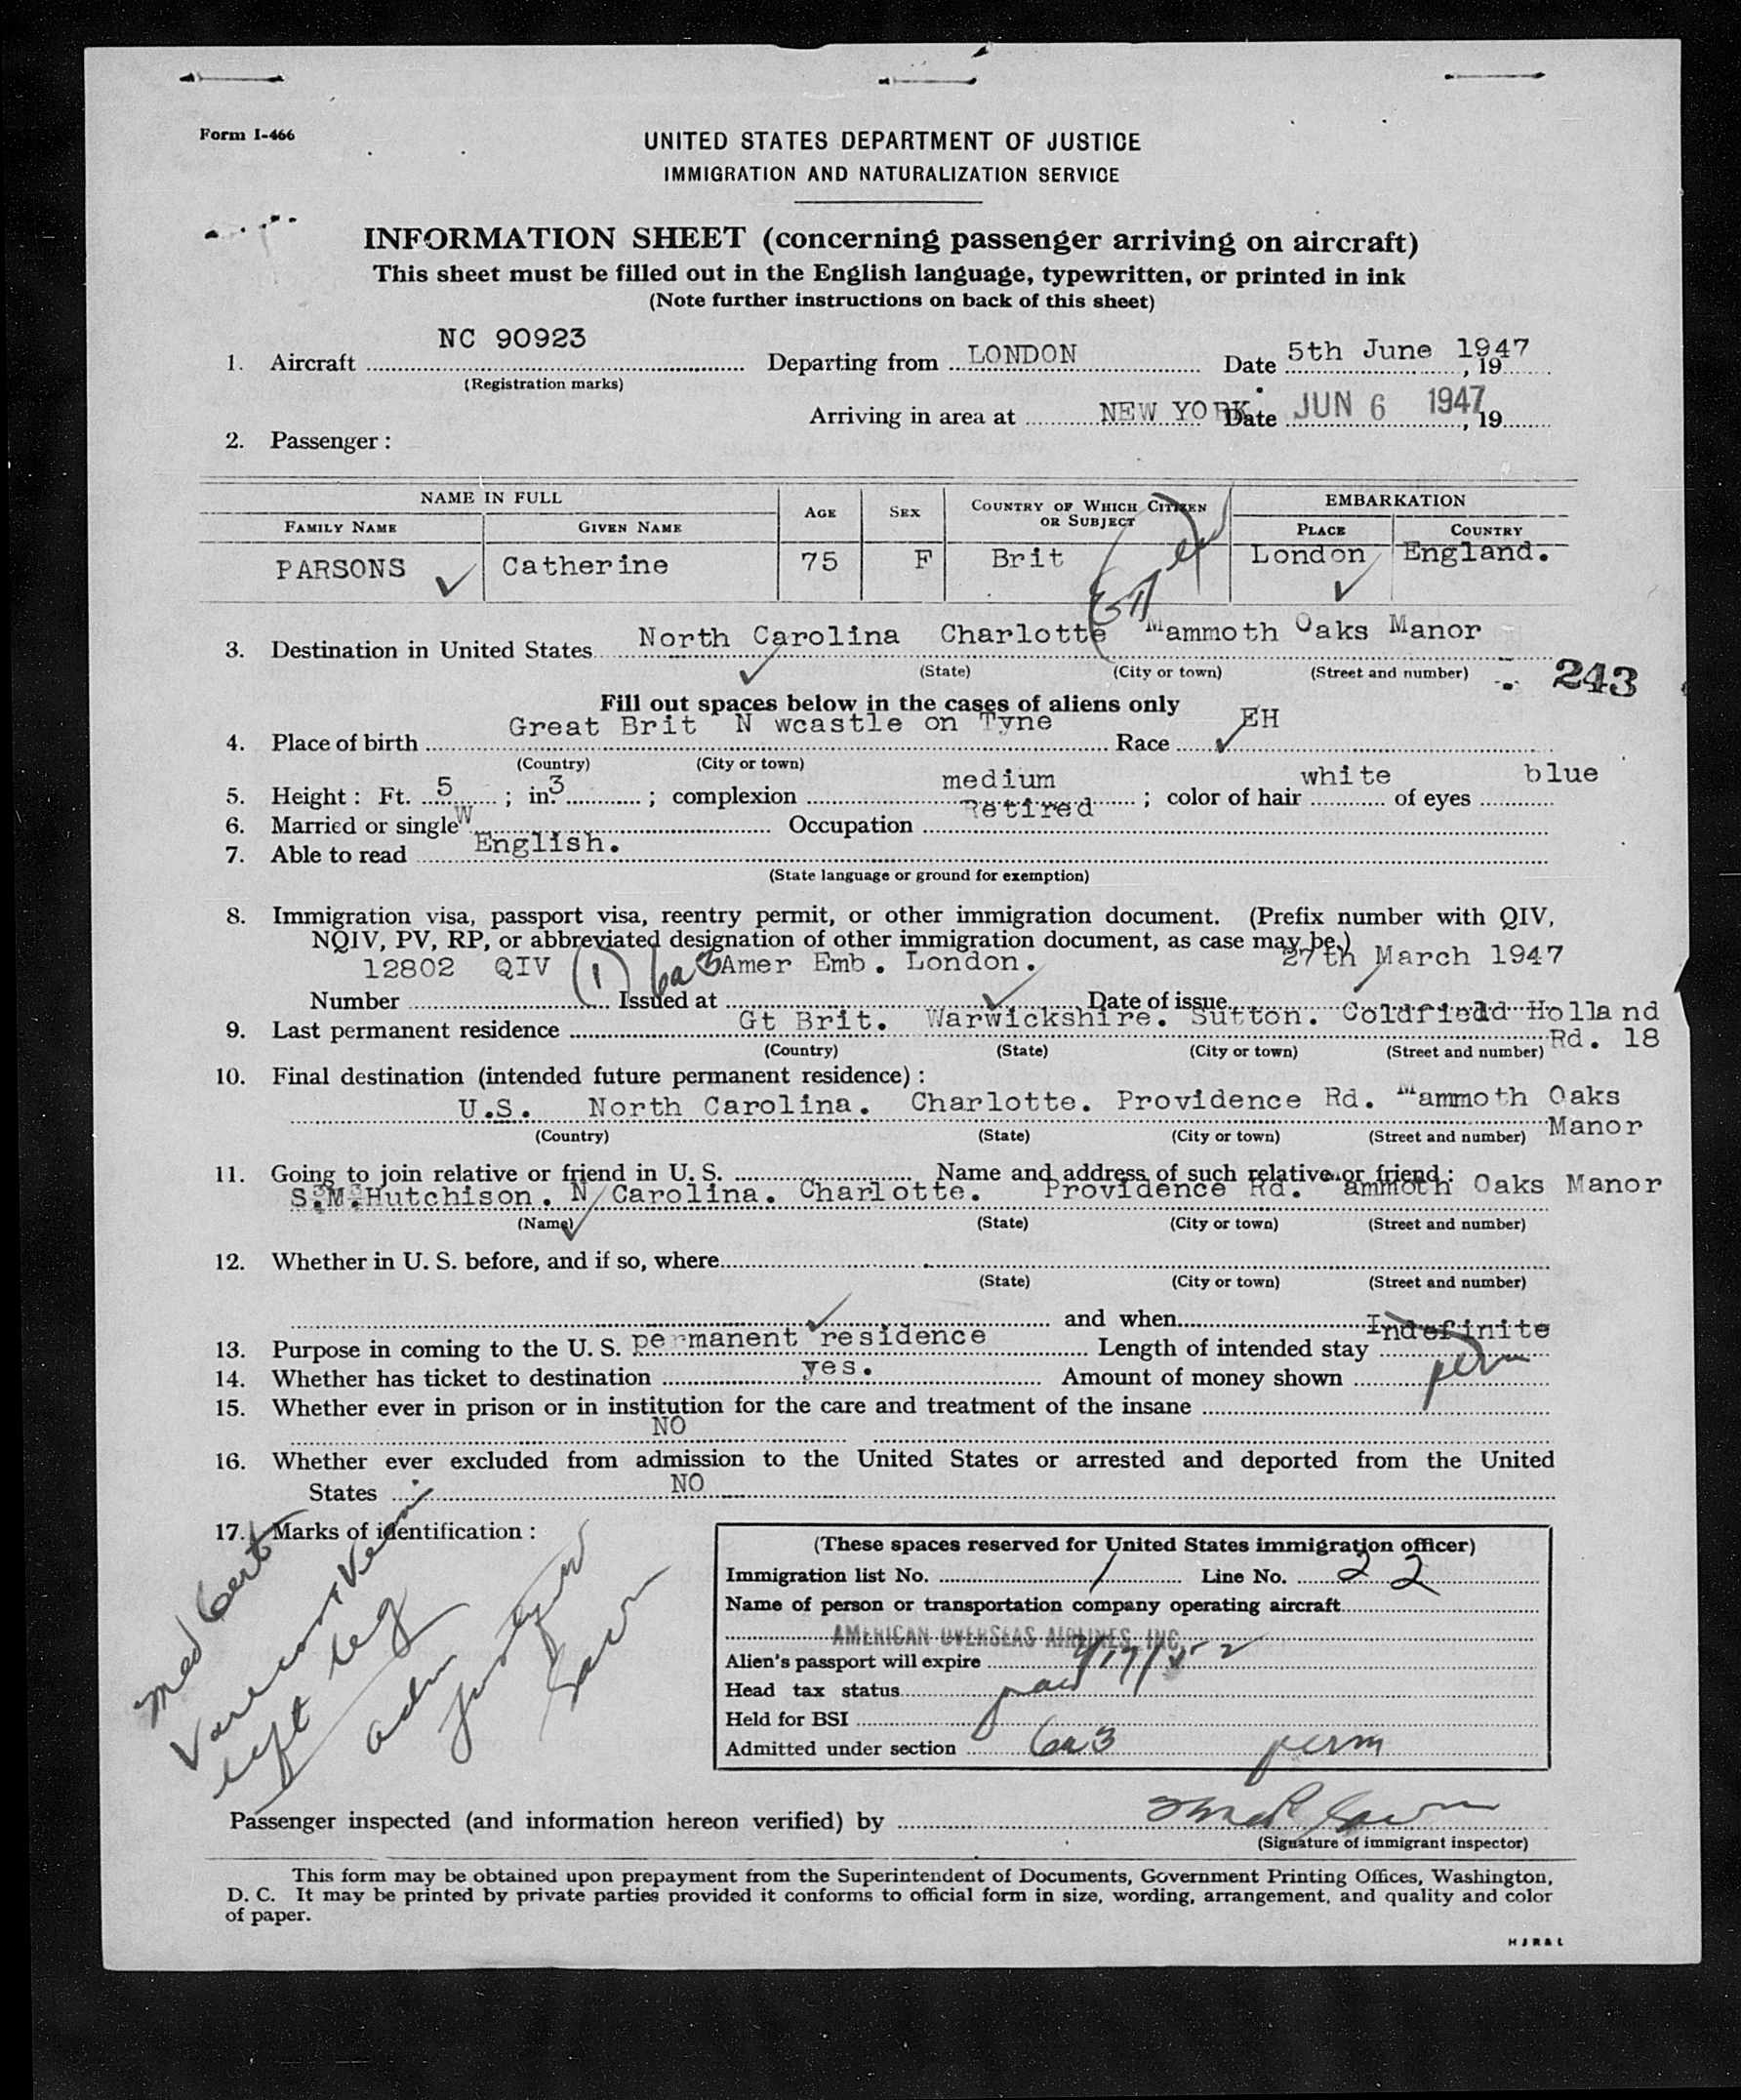 Form I-466
UNITED STATES DEPARTMENT OF JUSTICE
IMMIGRATION AND NATURALIZATION SERVICE
INFORMATION SHEET (concerning passenger arriving on aircraft)
This sheet must be filled out in the English language, typewritten, or printed in ink
(Note further instructions on back of this sheet)
1. Aircraft NC 90923 Departing from LONDON Date 5th June 1947, 19
(Registration marks)
Arriving in area at NEW YORK Date JUN 6 1947, 19
2. Passenger:
NAME IN FULL AGE SEX COUNTRY OF WHICH CITIZEN OR SUBJECT EMBARKATION
FAMILY NAME GIVEN NAME PLACE COUNTRY
PARSONS Catherine 75 F Brit London England.
3. Destination in United States North Carolina Charlotte Mammoth Oaks Manor
(State) (City or town) (Street and number)
243
Fill out spaces below in the cases of aliens only
4. Place of birth Great Brit N wcastle on Tyne Race EH
(Country) (City or town)
5. Height: Ft. 5; in. 3; complexion medium; color of hair white of eyes blue
6. Married or single W Occupation Retired
7. Able to read English.
(State language or ground for exemption)
8. Immigration visa, passport visa, reentry permit, or other immigration document. (Prefix number with QIV,
NQIV, PV, RP, or abbreviated designation of other immigration document, as case may be.)
12802 QIV (1) 6a3 Amer Emb. London. 27th March 1947
Number Issued at Date of issue
9. Last permanent residence Gt Brit. Warwickshire. Sutton. Coldfield Holland
Rd. 18
(Country) (State) (City or town) (Street and number)
10. Final destination (intended future permanent residence):
U.S. North Carolina. Charlotte. Providence Rd. Mammoth Oaks
Manor
(Country) (State) (City or town) (Street and number)
11. Going to join relative or friend in U. S. Name and address of such relative or friend:
S.M.Hutchison. N Carolina. Charlotte. Providence Rd. Mammoth Oaks Manor
(Name) (State) (City or town) (Street and number)
12. Whether in U. S. before, and if so, where
(State) (City or town) (Street and number)
and when
13. Purpose in coming to the U. S. permanent residence Length of intended stay Indefinite
perm
14. Whether has ticket to destination yes. Amount of money shown
15. Whether ever in prison or in institution for the care and treatment of the insane
NO
16. Whether ever excluded from admission to the United States or arrested and deported from the United
States NO
17. Marks of identification:
Med Cert
Varicose Veins
left leg
adm
(These spaces reserved for United States immigration officer)
Immigration list No. 1 Line No. 22
Name of person or transportation company operating aircraft
AMERICAN OVERSEAS AIRLINES, INC.
Alien's passport will expire
Head tax status paid
Held for BSI
Admitted under section 6a3 perm
Passenger inspected (and information hereon verified) by
(Signature of immigrant inspector)
This form may be obtained upon prepayment from the Superintendent of Documents, Government Printing Offices, Washington,
D. C. It may be printed by private parties provided it conforms to official form in size, wording, arrangement, and quality and color
of paper.
H J R & L